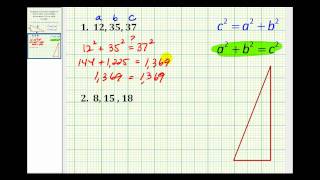 a b c
1. 12, 35, 37
12² + 35² ≟ 37²
144 + 1,225 = 1,369
1,369 = 1,369
2. 8, 15, 18
c² = a² + b²
a² + b² = c²